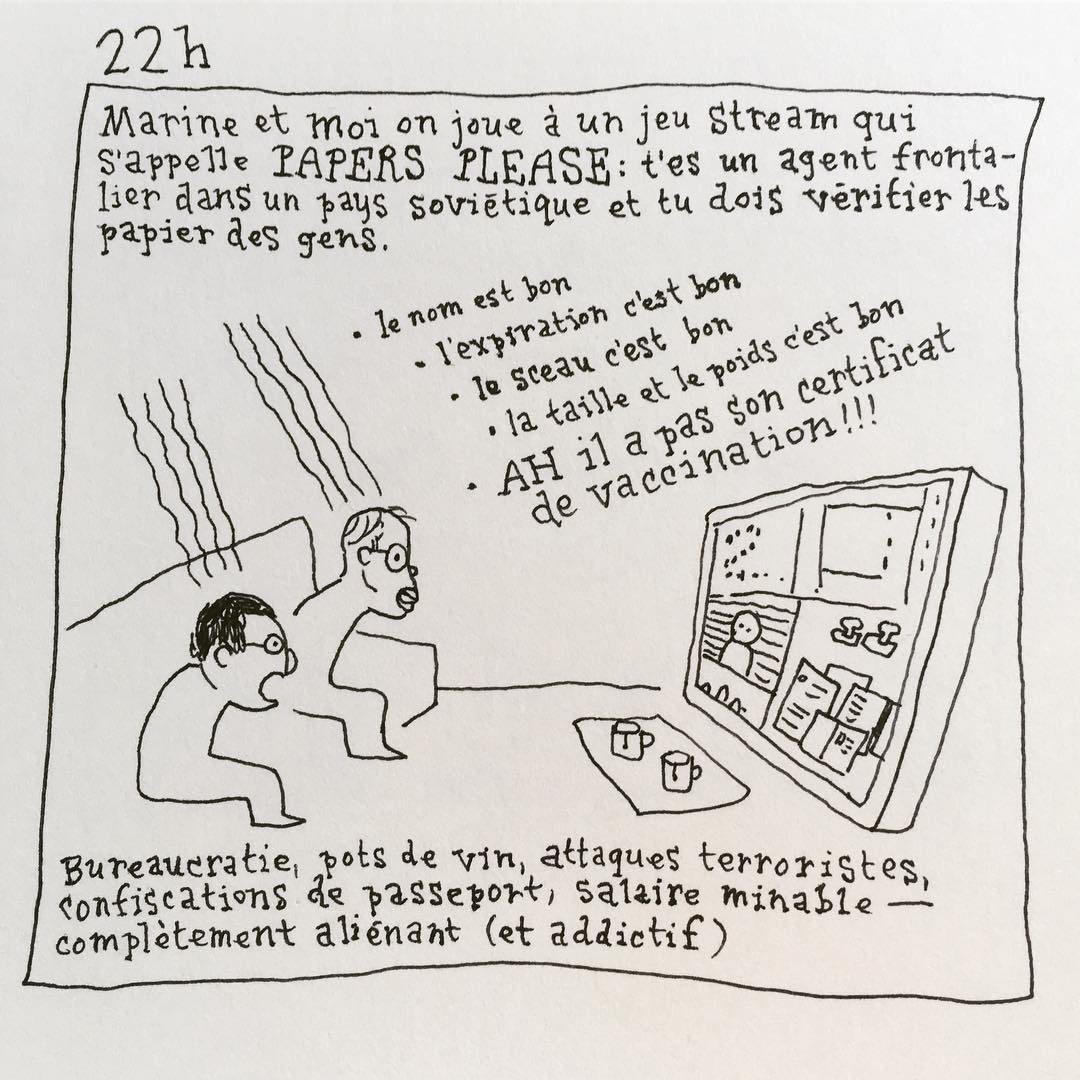 22h
Marine et moi on joue à un jeu Stream qui
s'appelle PAPERS PLEASE: t'es un agent fronta-
lier dans un pays soviétique et tu dois vérifier les
papier des gens.
• le nom est bon
• l'expiration c'est bon
• le sceau c'est bon
• la taille et le poids c'est bon
• AH il a pas son certificat
de vaccination!!!
Bureaucratie, pots de vin, attaques terroristes,
confiscations de passeport, salaire minable —
complètement aliénant (et addictif)